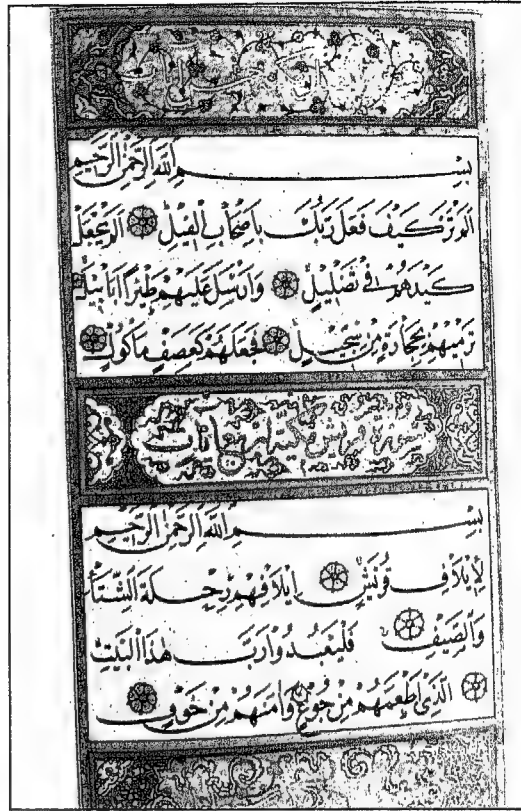 بِسْمِ اللَّهِ الرَّحْمَنِ الرَّحِيمِ
أَلَمْ تَرَ كَيْفَ فَعَلَ رَبُّكَ بِأَصْحَابِ الْفِيلِ أَلَمْ يَجْعَلْ
كَيْدَهُمْ فِي تَضْلِيلٍ وَأَرْسَلَ عَلَيْهِمْ طَيْرًا أَبَابِيلَ
تَرْمِيهِمْ بِحِجَارَةٍ مِنْ سِجِّيلٍ فَجَعَلَهُمْ كَعَصْفٍ مَأْكُولٍ
سورة قريش مكية اربع ايات
بِسْمِ اللَّهِ الرَّحْمَنِ الرَّحِيمِ
لِإِيلَافِ قُرَيْشٍ إِيلَافِهِمْ رِحْلَةَ الشِّتَاءِ
وَالصَّيْفِ فَلْيَعْبُدُوا رَبَّ هَذَا الْبَيْتِ
الَّذِي أَطْعَمَهُمْ مِنْ جُوعٍ وَآمَنَهُمْ مِنْ خَوْفٍ